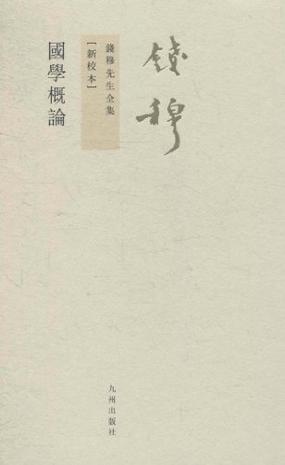 錢穆
錢穆先生全集
［新校本］
國學概論
九州出版社